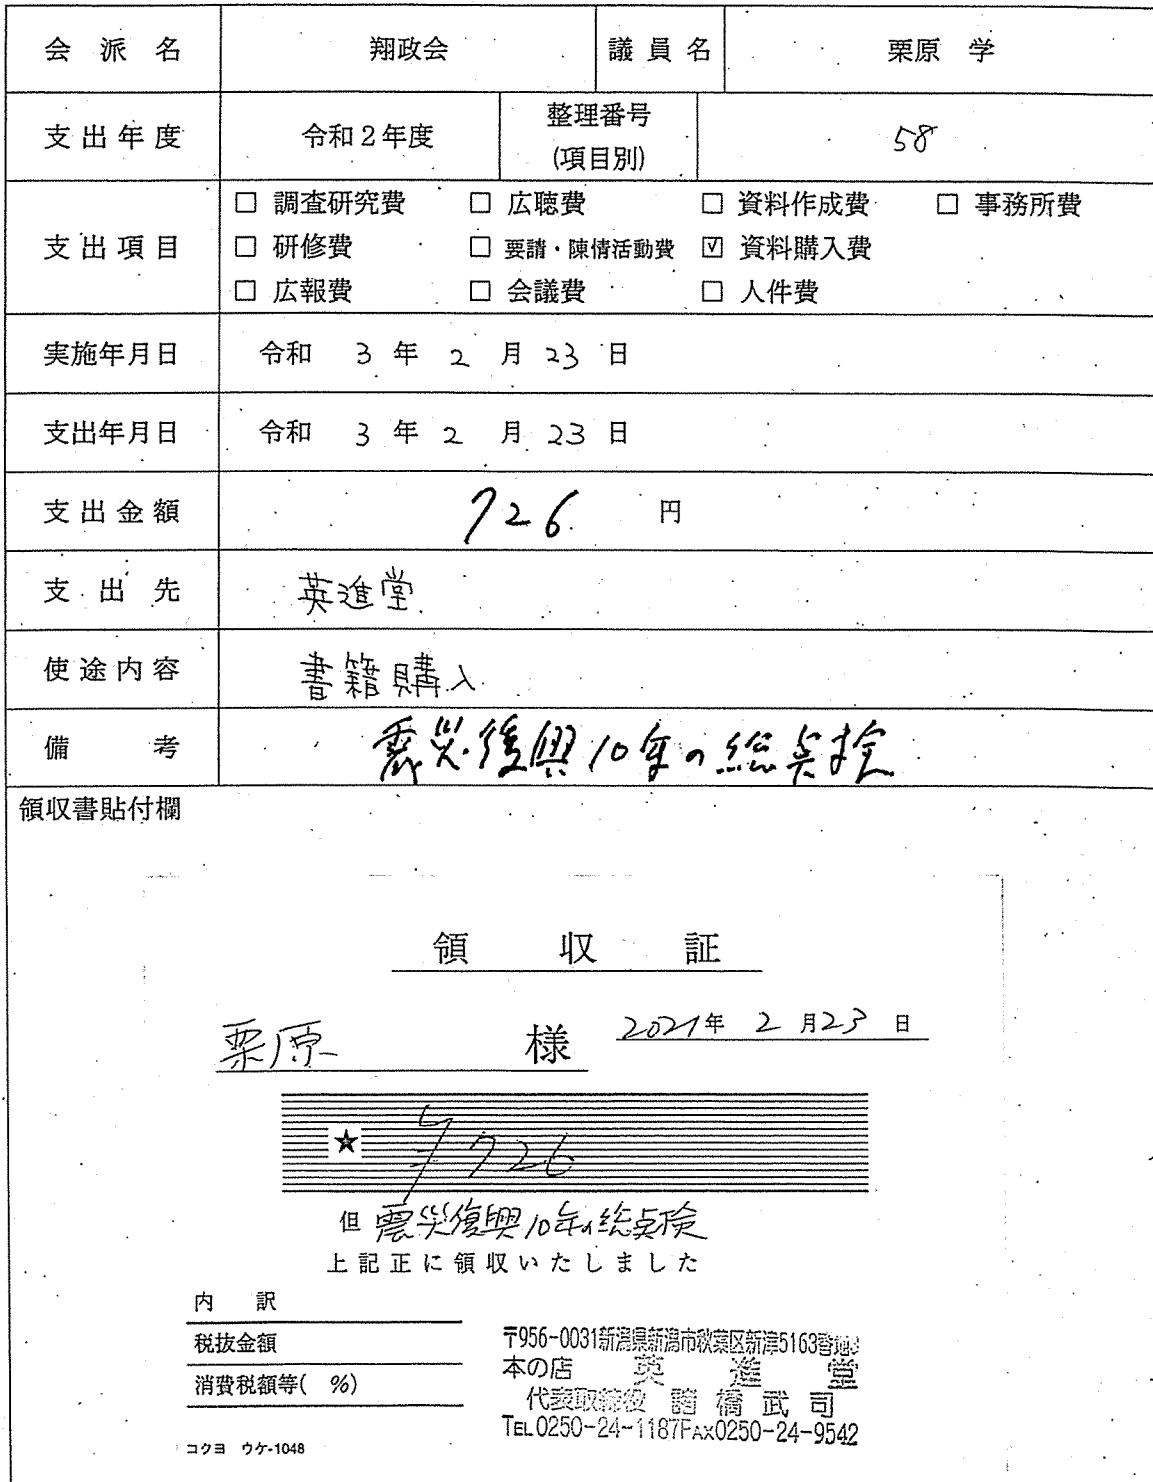 会派名 翔政会 議員名 栗原 学
支出年度 令和2年度 整理番号(項目別) 58
支出項目
□ 調査研究費 □ 広聴費 □ 資料作成費 □ 事務所費
□ 研修費 □ 要請・陳情活動費 ☑ 資料購入費
□ 広報費 □ 会議費 □ 人件費
実施年月日 令和 3 年 2 月 23 日
支出年月日 令和 3 年 2 月 23 日
支出金額 726 円
支出先 英進堂
使途内容 書籍購入
備考 震災復興10年の総点検
領収書貼付欄
領収証
栗原 様 2021年 2月23日
★ ¥726
但 震災復興10年の総点検
上記正に領収いたしました
内訳
税抜金額
消費税額等( %)
〒956-0031新潟県新潟市秋葉区新津5163番地
本の店 英進堂
代表取締役 諸橋武司
TEL0250-24-1187FAX0250-24-9542
コクヨ ウケ-1048